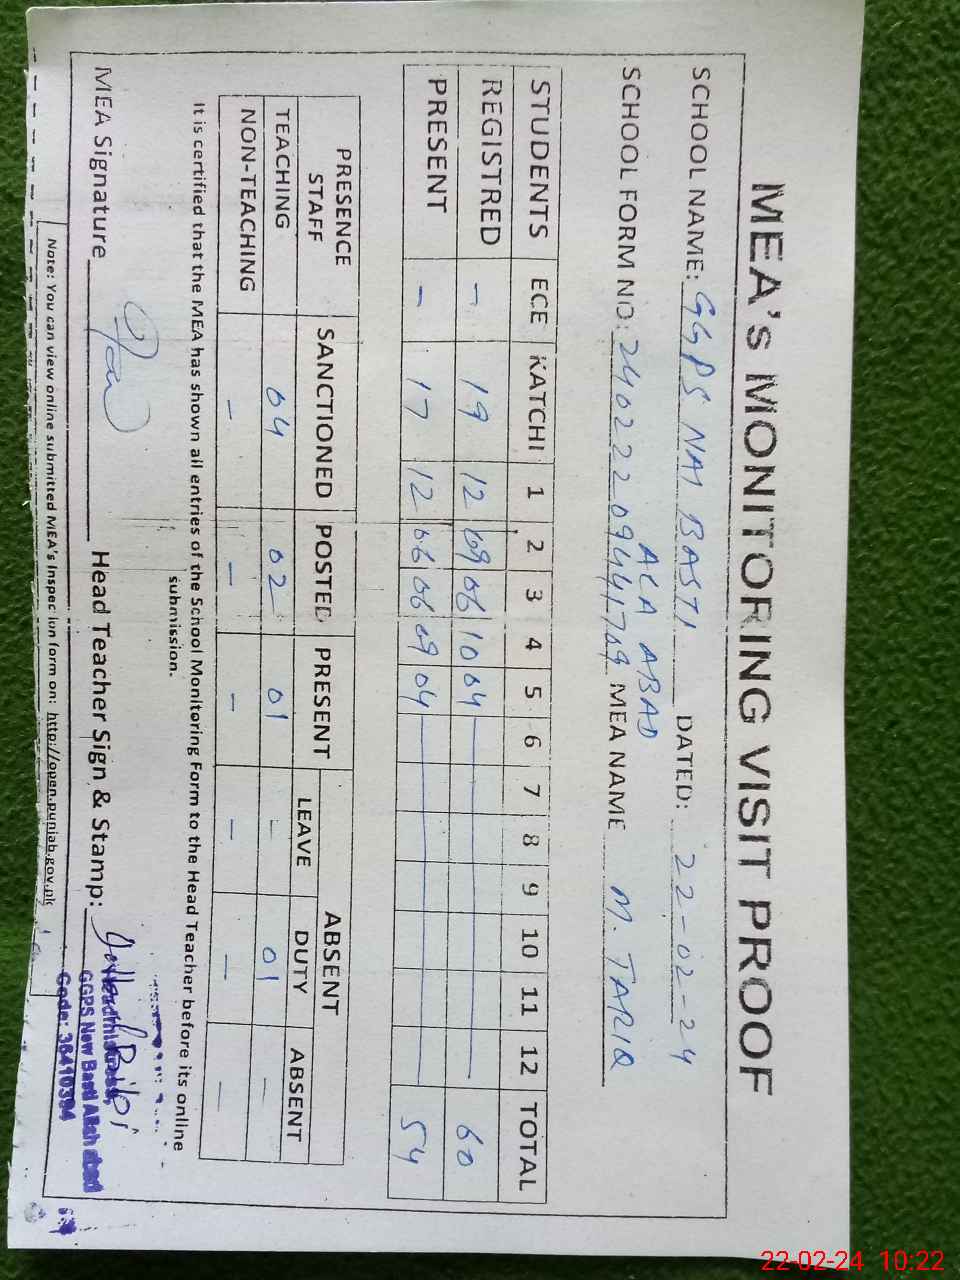 MEA's MONITORING VISIT PROOF
SCHOOL NAME: GGPS NAI BASTI DATED: 22-02-24
ALA ABAD
SCHOOL FORM NO: MEA NAME M. TARIQ
STUDENTS ECE KATCHI 1 2 3 4 5 6 7 8 9 10 11 12 TOTAL
REGISTRED - 19 12 09 06 10 04 60
PRESENT - 17 12 06 06 09 04 54
PRESENCE STAFF SANCTIONED POSTED PRESENT ABSENT
LEAVE DUTY ABSENT
TEACHING 04 02 01 - 01 -
NON-TEACHING - - - - - -
It is certified that the MEA has shown all entries of the School Monitoring Form to the Head Teacher before its online
submission.
MEA Signature Head Teacher Sign & Stamp:
GGPS New Basti Allah abad
Code: 36410394
Note: You can view online submitted MEA's Inspection form on: http://open.punjab.gov.pk
22-02-24 10:22